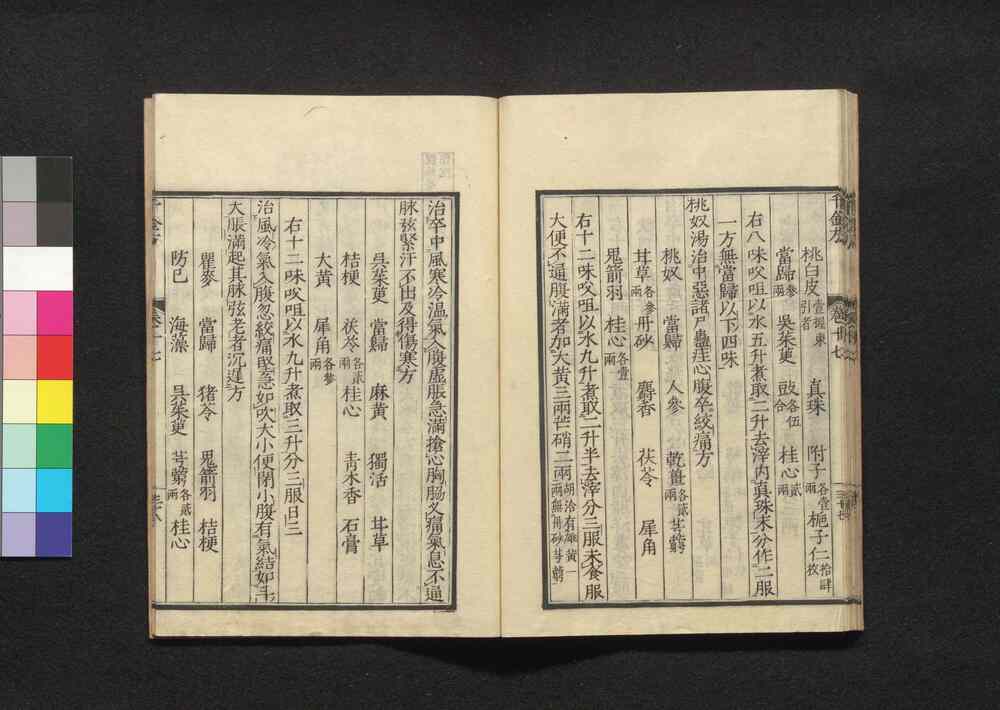 千金方
卷第十七
桃白皮壹握東引者 真珠 附子各壹兩 梔子仁拾肆枚
當歸參兩 吳茱萸 豉各伍合 桂心貳兩
右八味㕮咀以水五升煮取二升去滓內真珠末分作二服
一方無當歸以下四味
桃奴湯治中惡諸尸蠱疰心腹卒絞痛方
桃奴 當歸 人參 乾薑各貳兩 芎藭
甘草各參兩 丹砂 麝香 茯苓 犀角
鬼箭羽 桂心各壹兩
右十二味㕮咀以水九升煮取二升半去滓分三服未食服
大便不通腹滿者加大黃三兩芒硝二兩胡洽有雄黃一兩無丹砂芎藭
治卒中風寒冷溫氣入腹虛脹急滿搶心胸脇叉痛氣息不通
脉弦緊汗不出及得傷寒方
吳茱萸 當歸 麻黃 獨活 甘草
桔梗 茯苓各貳兩 桂心 青木香 石膏
大黃 犀角各參兩
右十二味㕮咀以水九升煮取三升分三服日三
治風冷氣入腹忽絞痛堅急如吹大小便閉小腹有氣結如斗
大脹滿起其脉弦老者沉遲方
瞿麥 當歸 猪苓 鬼箭羽 桔梗
防己 海藻 吳茱萸 芎藭各貳兩 桂心